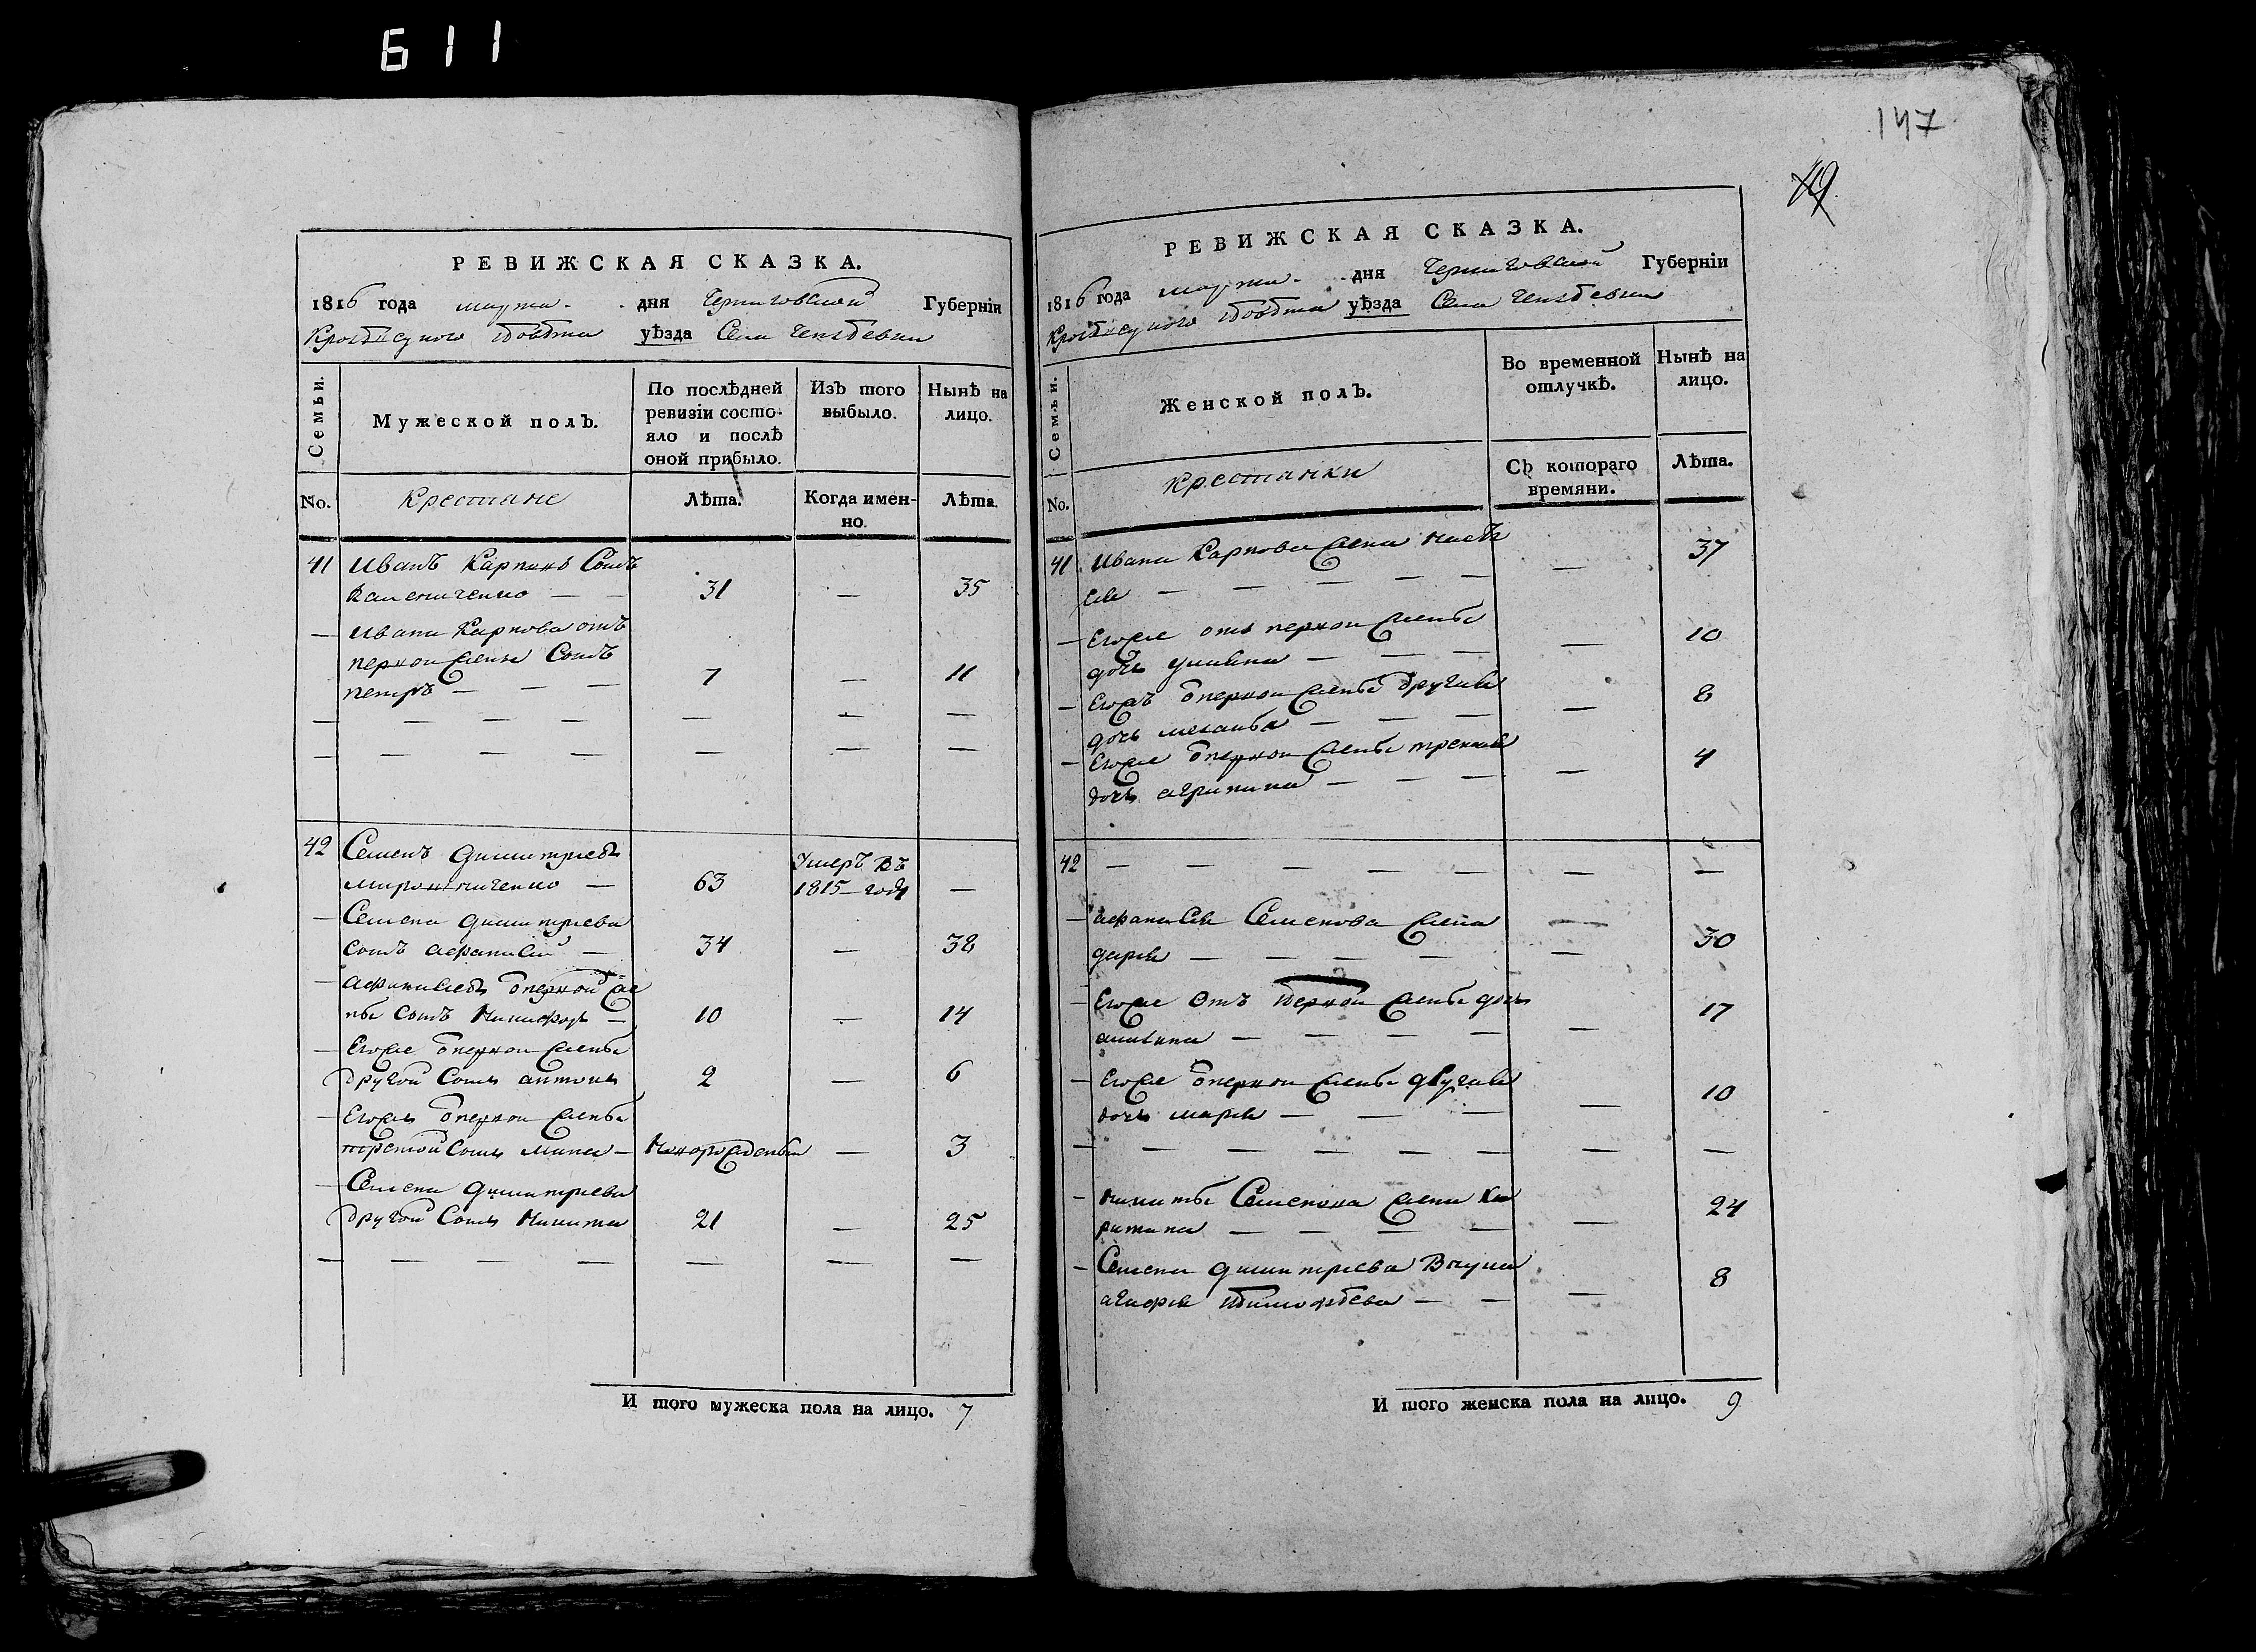 611
147
119.
РЕВИЖСКАЯ СКАЗКА.
1816 года марта - дня Черниговской Губерніи
уѣзда Села
Семьи.
Мужеской полъ.
По послѣдней ревизіи состо-
яло и послѣ оной прибыло.
Изъ того выбыло.
Нынѣ на лицо.
No.
Крестяне
Лѣта.
Когда имен-
но.
Лѣта.
41 Иванъ Карповъ Сынъ
— 31 — 35
— Ивана Карпова отъ
первой жены Сынъ
петръ — 7 — 11
42 Семенъ Димитріевъ Умеръ въ
мироничненко — 63 1815 году —
— Семена Димитріева
сынъ афанасий — 34 — 38
— афанасиевъ от первой же
ны сынъ Никифоръ — 10 — 14
— Егоже от первой жены
другой сынъ антонъ 2 — 6
— Егожъ от первой жены
третой сынъ мина — Новорожденый — 3
— Семена Димитріева
другой Сынъ Никита 21 — 25
И того мужеска пола на лицо. 7
РЕВИЖСКАЯ СКАЗКА.
1816 года марта - дня Черниговской Губерніи
уѣзда Села
Семьи.
Женской полъ.
Во временной отлучкѣ.
Нынѣ на лицо.
No.
Крестянки
Съ котораго времяни.
Лѣта.
41 Ивана Карпова жена — 37
— Егоже отъ первой жены
дочь улияна — 10
— Егожъ от первой жены другая
дочь — 8
— Егоже от первой жены третая
дочь агрипина — 4
42 — — —
— афанасия Семенова жена
дария — 30
— Егоже Отъ первой жены дочь
— 17
— Егоже от первой жены другая
дочь мария — 10
— Никиты Семенова жена Ка
— 24
— Семена Димитріева Внука
агафия — 8
И того женска пола на лицо. 9